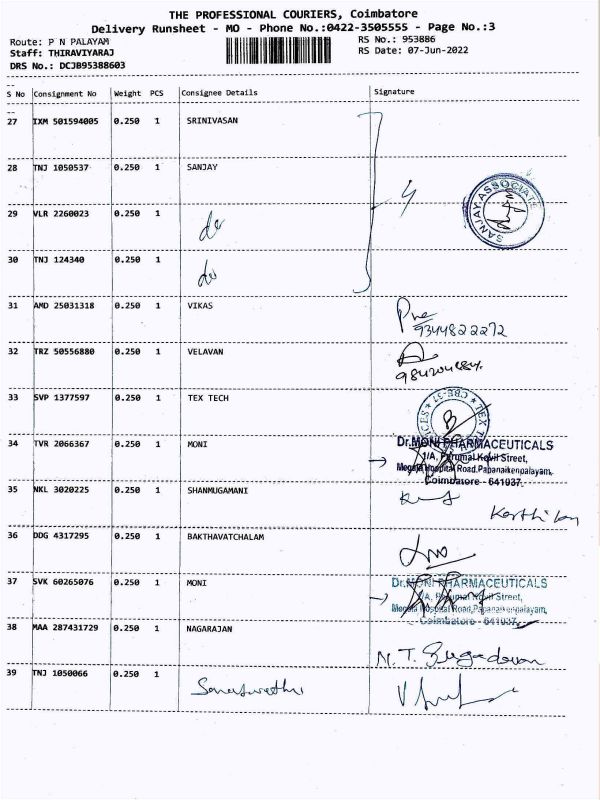 THE PROFESSIONAL COURIERS, Coimbatore
Delivery Runsheet - MO - Phone No.:0422-3505555 - Page No.:3
Route: P N PALAYAM RS No.: 953886
Staff: THIRAVIYARAJ RS Date: 07-Jun-2022
DRS No.: DCJB95388603
S No Consignment No Weight PCS Consignee Details Signature
27 IXM 501594005 0.250 1 SRINIVASAN
28 TNJ 1050537 0.250 1 SANJAY
SANJAY ASSOCIATE
29 VLR 2260023 0.250 1 do
30 TNJ 124340 0.250 1 do
31 AMD 25031318 0.250 1 VIKAS
9344822272
32 TRZ 50556880 0.250 1 VELAVAN
33 SVP 1377597 0.250 1 TEX TECH
34 TVR 2066367 0.250 1 MONI
Dr.MONI PHARMACEUTICALS
1/A, Perumal Kovil Street,
Megala Hospital Road,Papanaikenpalayam,
Coimbatore - 641037.
35 NKL 3020225 0.250 1 SHANMUGAMANI
36 DDG 4317295 0.250 1 BAKTHAVATCHALAM
37 SVK 60265076 0.250 1 MONI
Dr.MONI PHARMACEUTICALS
1/A, Perumal Kovil Street,
Megala Hospital Road,Papanaikenpalayam,
Coimbatore - 641037.
38 MAA 287431729 0.250 1 NAGARAJAN
39 TNJ 1050066 0.250 1